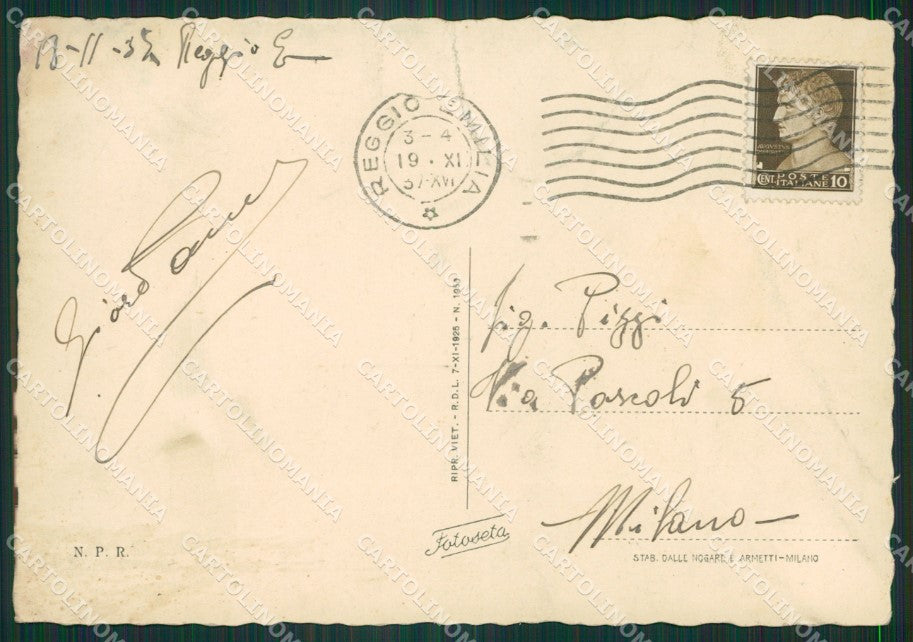 Reggio E
REGGIO EMILIA
3-4
19·XI
37·XVI
AUGVSTVS
CENT. POSTE 10
ITALIANE
Giordano
Sig. Piggi
Via Pascoli 5
-Milano-
RIPR. VIET. - R.D.L. 7-XI-1925 - N.
N. P. R.
Fotoseta
STAB. DALLE NOGARE E ARMETTI-MILANO
CARTOLINOMANIA